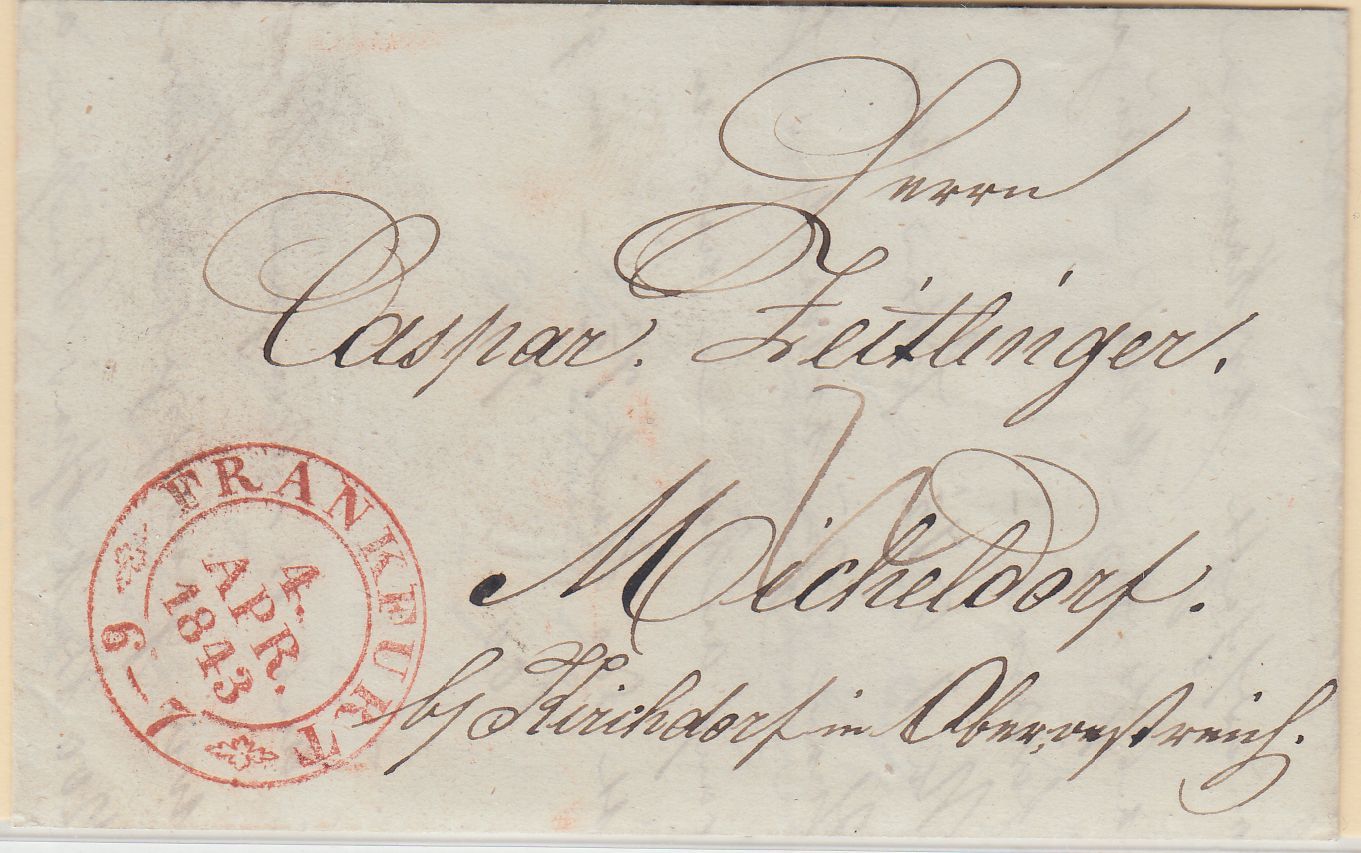 Herrn
Caspar. Zeitlinger.
Micheldorf.
b/ Kirchdorf in Oberoestreich.
FRANKFURT
4.
APR.
1843
6-7